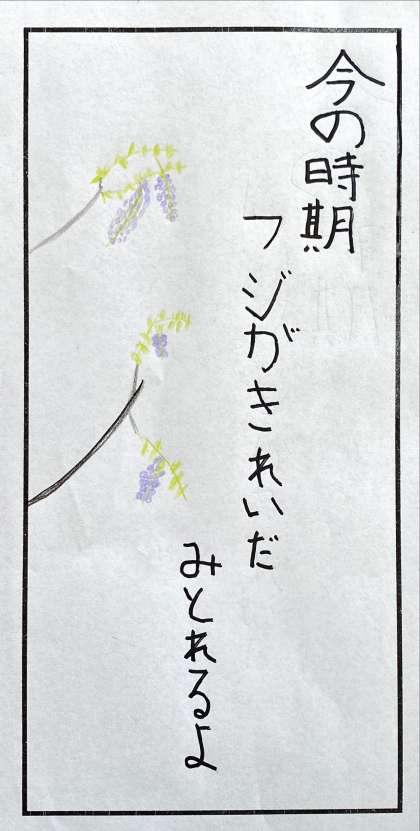 今の時期
フジがきれいだ
みとれるよ